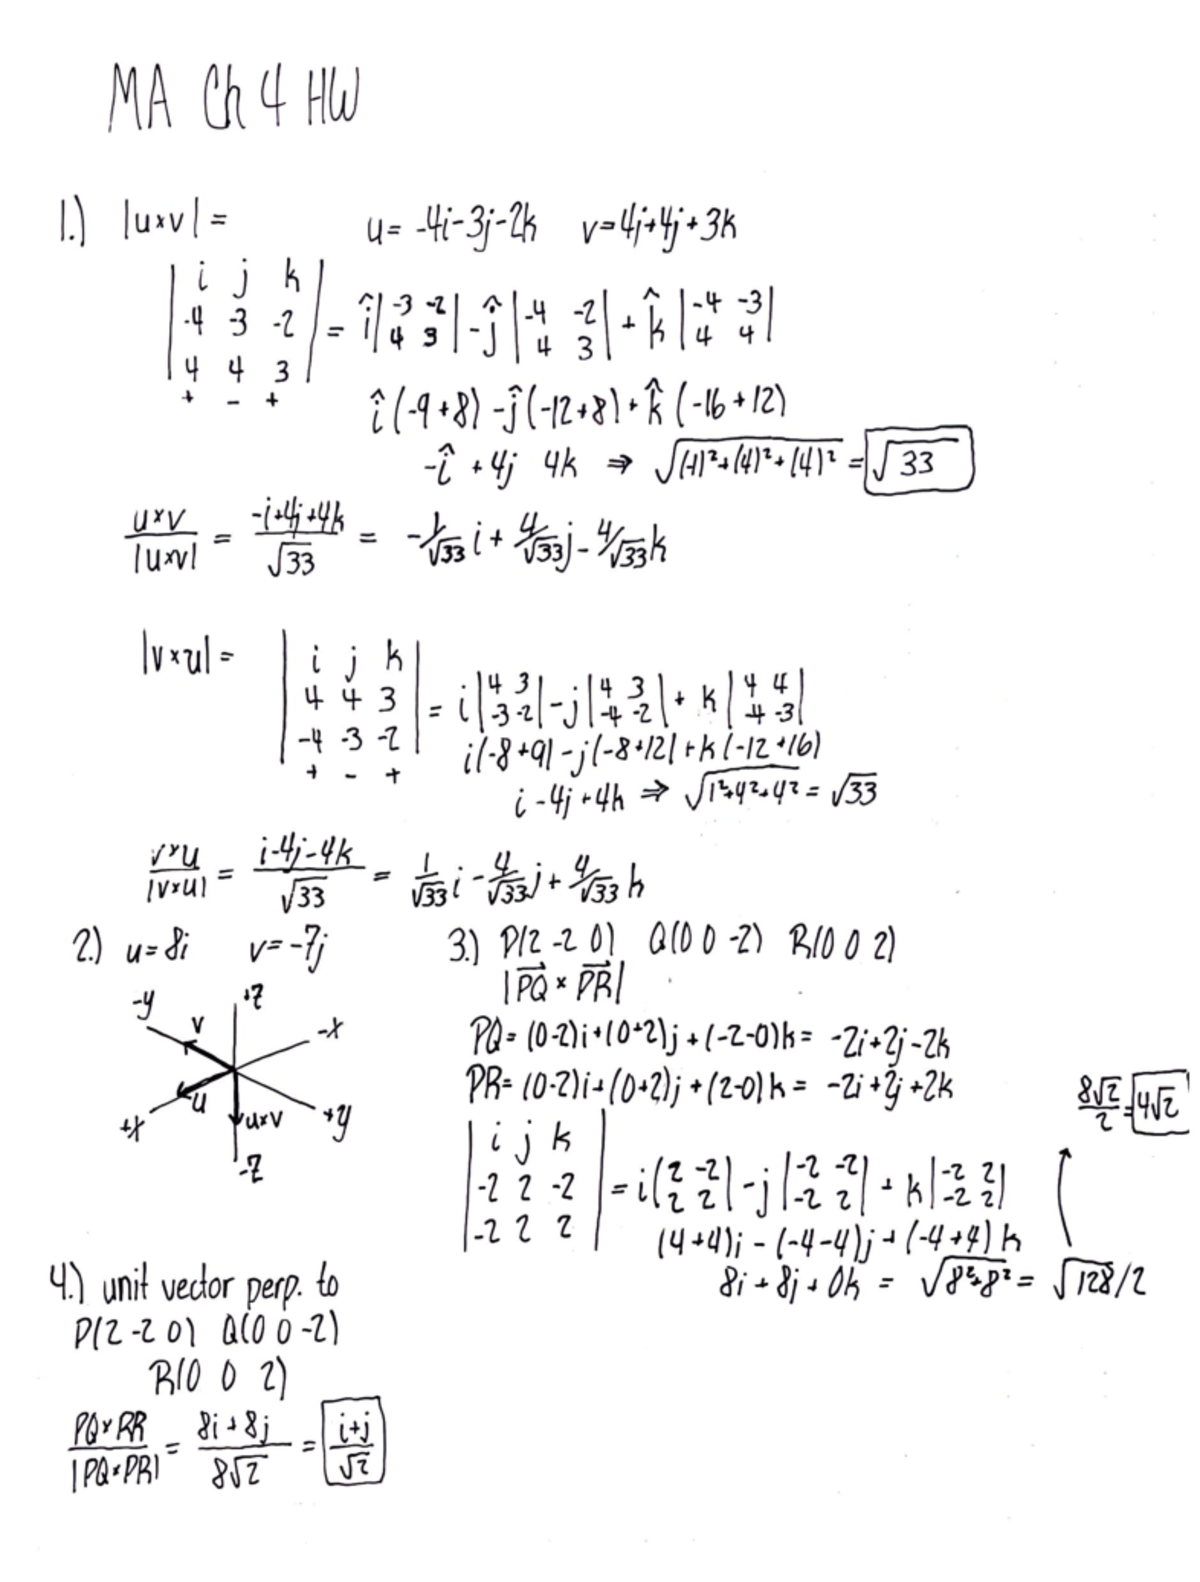 MA Ch 4 HW
1.) |u×v| = u= -4i-3j-2k v=4j+4j+3k
| i j k |
| -4 -3 -2 | = î| -3 -2 | - ĵ | -4 -2 | + k̂ | -4 -3 |
| 4 4 3 | | 4 3 | | 4 3 | | 4 4 |
+ - +
î(-9+8) - ĵ(-12+8) + k̂(-16+12)
-î + 4j 4k ⇒ √(-1)²+(4)²+(4)² = √33
u×v / |u×v| = -i+4j+4k / √33 = -1/√33 i + 4/√33 j - 4/√33 k
|v×u| = | i j k |
| 4 4 3 | = i| 4 3 | - j| 4 3 | + k| 4 4 |
| -4 -3 -2 | | -3 -2 | | -4 -2 | | -4 -3 |
+ - +
i(-8+9) - j(-8+12) + k(-12+16)
i - 4j + 4k ⇒ √1²+4²+4² = √33
v×u / |v×u| = i-4j-4k / √33 = 1/√33 i - 4/√33 j + 4/√33 k
2.) u=8i v=-7j
-y +z
v -x
u
+x u×v +y
-z
3.) P(2 -2 0) Q(0 0 -2) R(0 0 2)
|PQ × PR|
PQ= (0-2)i+(0+2)j+(-2-0)k= -2i+2j-2k
PR= (0-2)i+(0+2)j+(2-0)k= -2i+2j+2k
8√2 / 2 = 4√2
| i j k |
| -2 2 -2 | = i( 2 -2 | - j| -2 -2 | + k| -2 2 |
| -2 2 2 | 2 2 | | -2 2 | | -2 2 |
(4+4)i - (-4-4)j + (-4+4)k
8i + 8j + 0k = √8²+8² = √128/2
4.) unit vector perp. to
P(2 -2 0) Q(0 0 -2)
R(0 0 2)
PQ×RR / |PQ×PR| = 8i+8j / 8√2 = i+j / √2